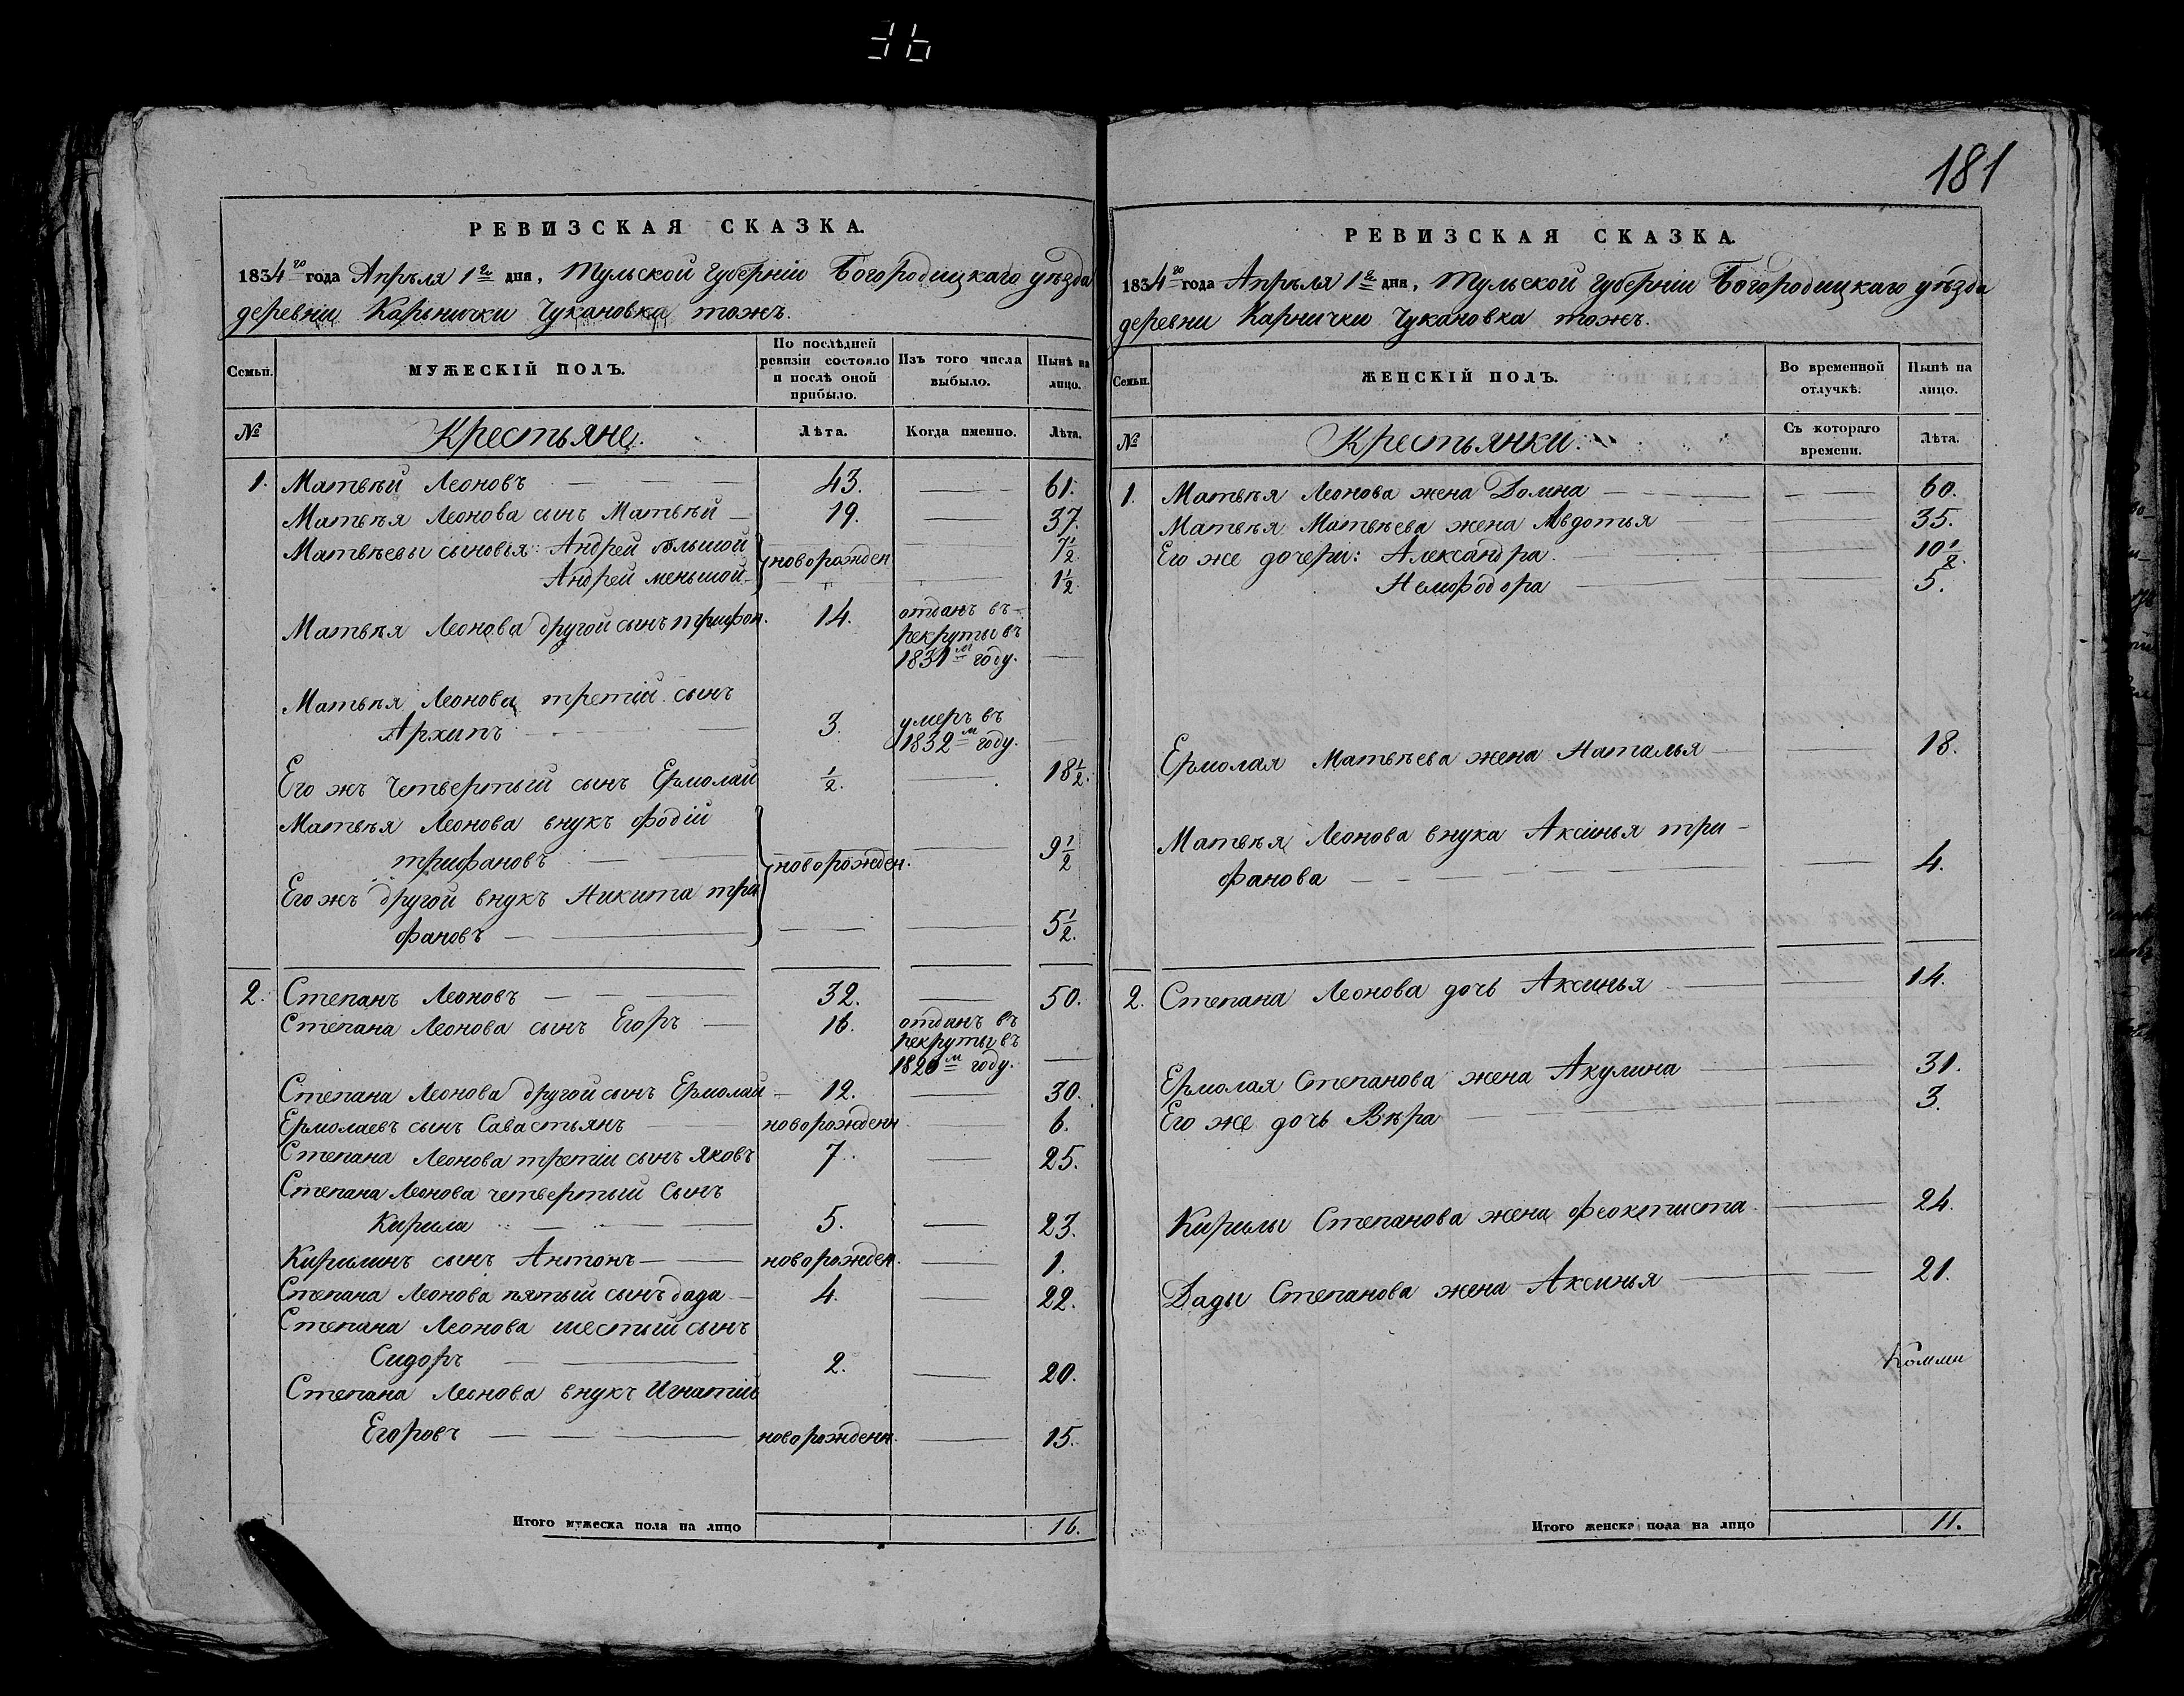 36
РЕВИЗСКАЯ СКАЗКА.
1834го года Апрѣля 1го дня, Тульской Губерніи Богородицкаго уѣзда
деревни Карьнички Чукановка тожъ.
Семьи.
МУЖЕСКІЙ ПОЛЪ.
По послѣдней ревизіи состояло и послѣ оной прибыло.
Изъ того числа выбыло.
Нынѣ на лицо.
№
Крестьяне.
Лѣта.
Когда именно.
Лѣта.
1. Матвѣй Леоновъ — 43. — 61.
Матвѣя Леонова сынъ Матвѣй — 19. — 37.
Матвѣевы сыновья: Андрей большой новорожден — 7½
Андрей меньшой — 1½
Матвѣя Леонова другой сынъ трифон. 14. отданъ въ рекруты въ 1831м году. —
Матвѣя Леонова третій сынъ
Архипъ — 3. умеръ въ 1832м году. —
Его жъ Четвертый сынъ Ермолай ½. — 18½.
Матвѣя Леонова внукъ фодій
трифановъ — новорожден. — 9½
Его жъ другой внукъ Никита три
фановъ — 5½.
2. Степанъ Леоновъ — 32. — 50.
Степана Леонова сынъ Егоръ — 16. отданъ въ рекруты въ 1826м году. —
Степана Леонова другой сынъ Ермолай — 12. — 30.
Ермолаевъ сынъ Савастьянъ — новорожденн — 6.
Степана Леонова третіи сынъ яковъ 7. — 25.
Степана Леонова четвертый Сынъ
Кирила — 5. — 23.
Кирилинъ сынъ Антонъ — новорожден. — 1.
Степана Леонова пятый сынъ дада — 4. — 22.
Степана Леонова шестый сынъ
Сидоръ — 2. — 20.
Степана Леонова внукъ Игнатій
Егоровъ — новорожденн. — 15.
Итого мужеска пола на лицо 16.
181
РЕВИЗСКАЯ СКАЗКА.
1834го года Апрѣля 1го дня, Тульской губерніи Богородицкаго уѣзда
деревни Карнички Чукановка тожъ.
Семьи.
ЖЕНСКІЙ ПОЛЪ.
Во временной отлучкѣ.
Нынѣ на лицо.
№
Крестьянки.
Съ котораго времени.
Лѣта.
1. Матвѣя Леонова жена Домна — 60.
Матвѣя Матвѣева жена Авдотья — 35.
Его же дочери: Александра. 10½.
Немофодора — 5.
Ермолая Матвѣева жена Наталья — 18.
Матвѣя Леонова внука Аксинья три-
фанова — 4.
2. Степана Леонова дочь Аксинья — 14.
Ермолая Степанова жена Акулина — 31.
Его же дочь Вѣра — 3.
Кирилы Степанова жена феоктиста — 24.
Дады Степанова жена Аксинья — 21.
Итого женска пола на лицо 11.